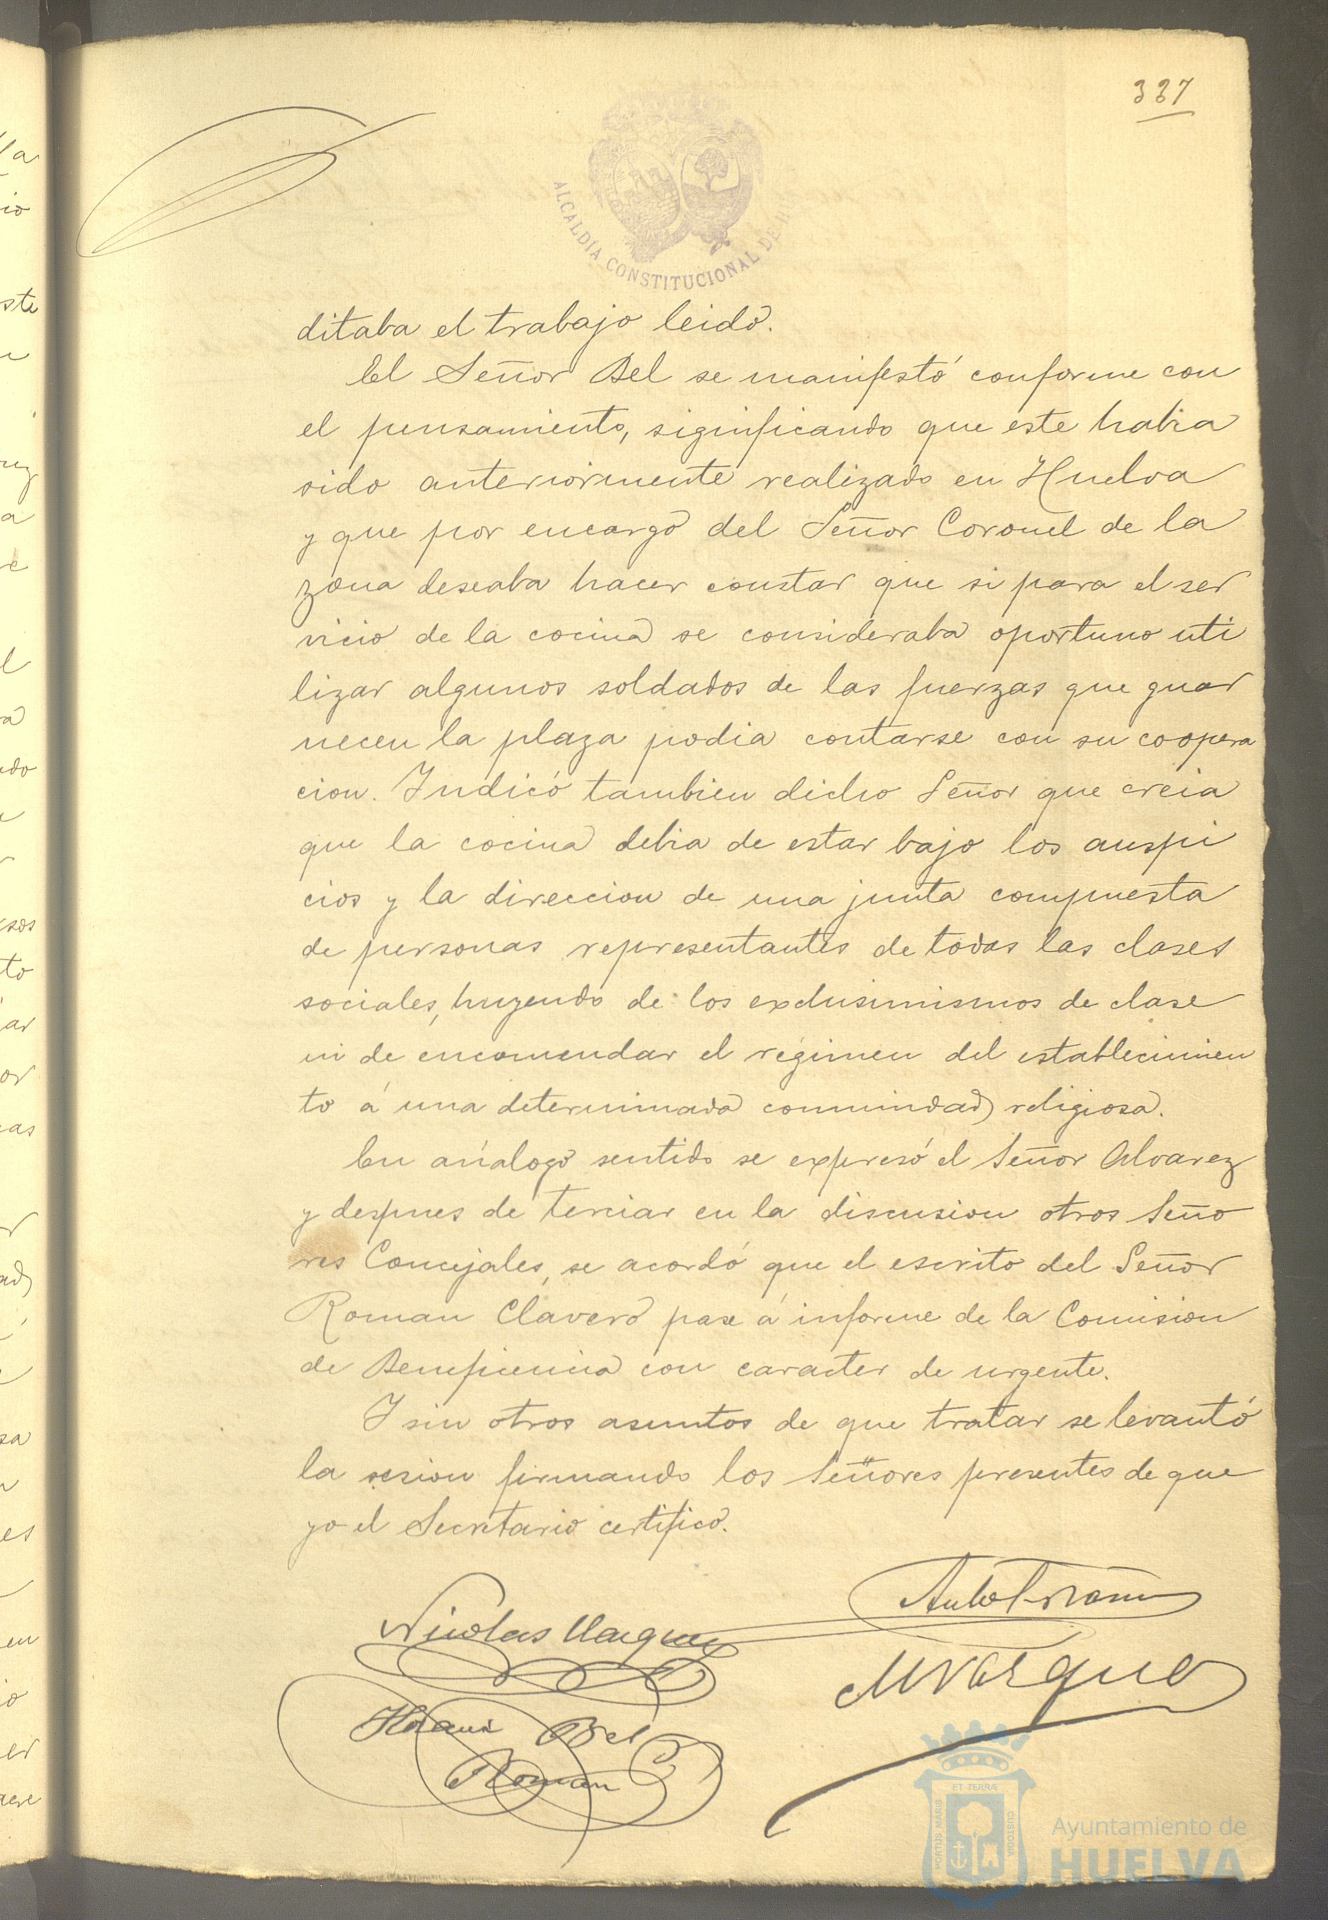 337
ALCALDIA CONSTITUCIONAL DE HU
ditaba el trabajo leido.
El Señor Bel se manifestó conforme con
el pensamiento, significando que este habia
sido anteriormente realizado en Huelva
y que por encargo del Señor Coronel de la
zona deseaba hacer constar que si para el ser
vicio de la cocina se consideraba oportuno uti
lizar algunos soldados de las fuerzas que guar
necen la plaza podia contarse con su coopera
cion. Indicó tambien dicho Señor que creia
que la cocina debia de estar bajo los auspi
cios y la direccion de una junta compuesta
de personas representantes de todas las clases
sociales, huyendo de los exclusimismos de clase
ni de encomendar el régimen del establecimien
to á una determinada comunidad religiosa.
En análogo sentido se expresó el Señor Alvarez
y despues de terciar en la discusion otros Seño
res Concejales, se acordó que el escrito del Señor
Roman Clavero pase á informe de la Comision
de Beneficencia con caracter de urgente.
Y sin otros asuntos de que tratar se levantó
la sesion firmando los Señores presentes de que
yo el Secretario certifico.
Nicolas Vazquez
M Vazquez
Bel
Roman
PORTUS MARIS ET TERRÆ CUSTODIA
Ayuntamiento de
HUELVA